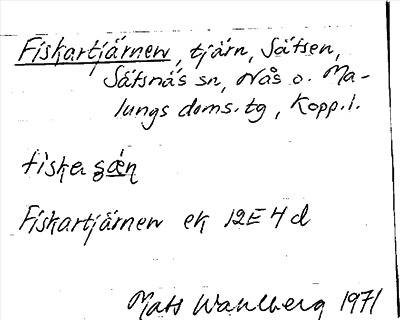 Fiskartjärnen, tjärn, Sätsen,
Sätsnäs sn, Nås o. Ma-
lungs doms.tg, Kopp.l.
Fiskartjärnen ek 12E 4d
Mats Wahlberg 1971